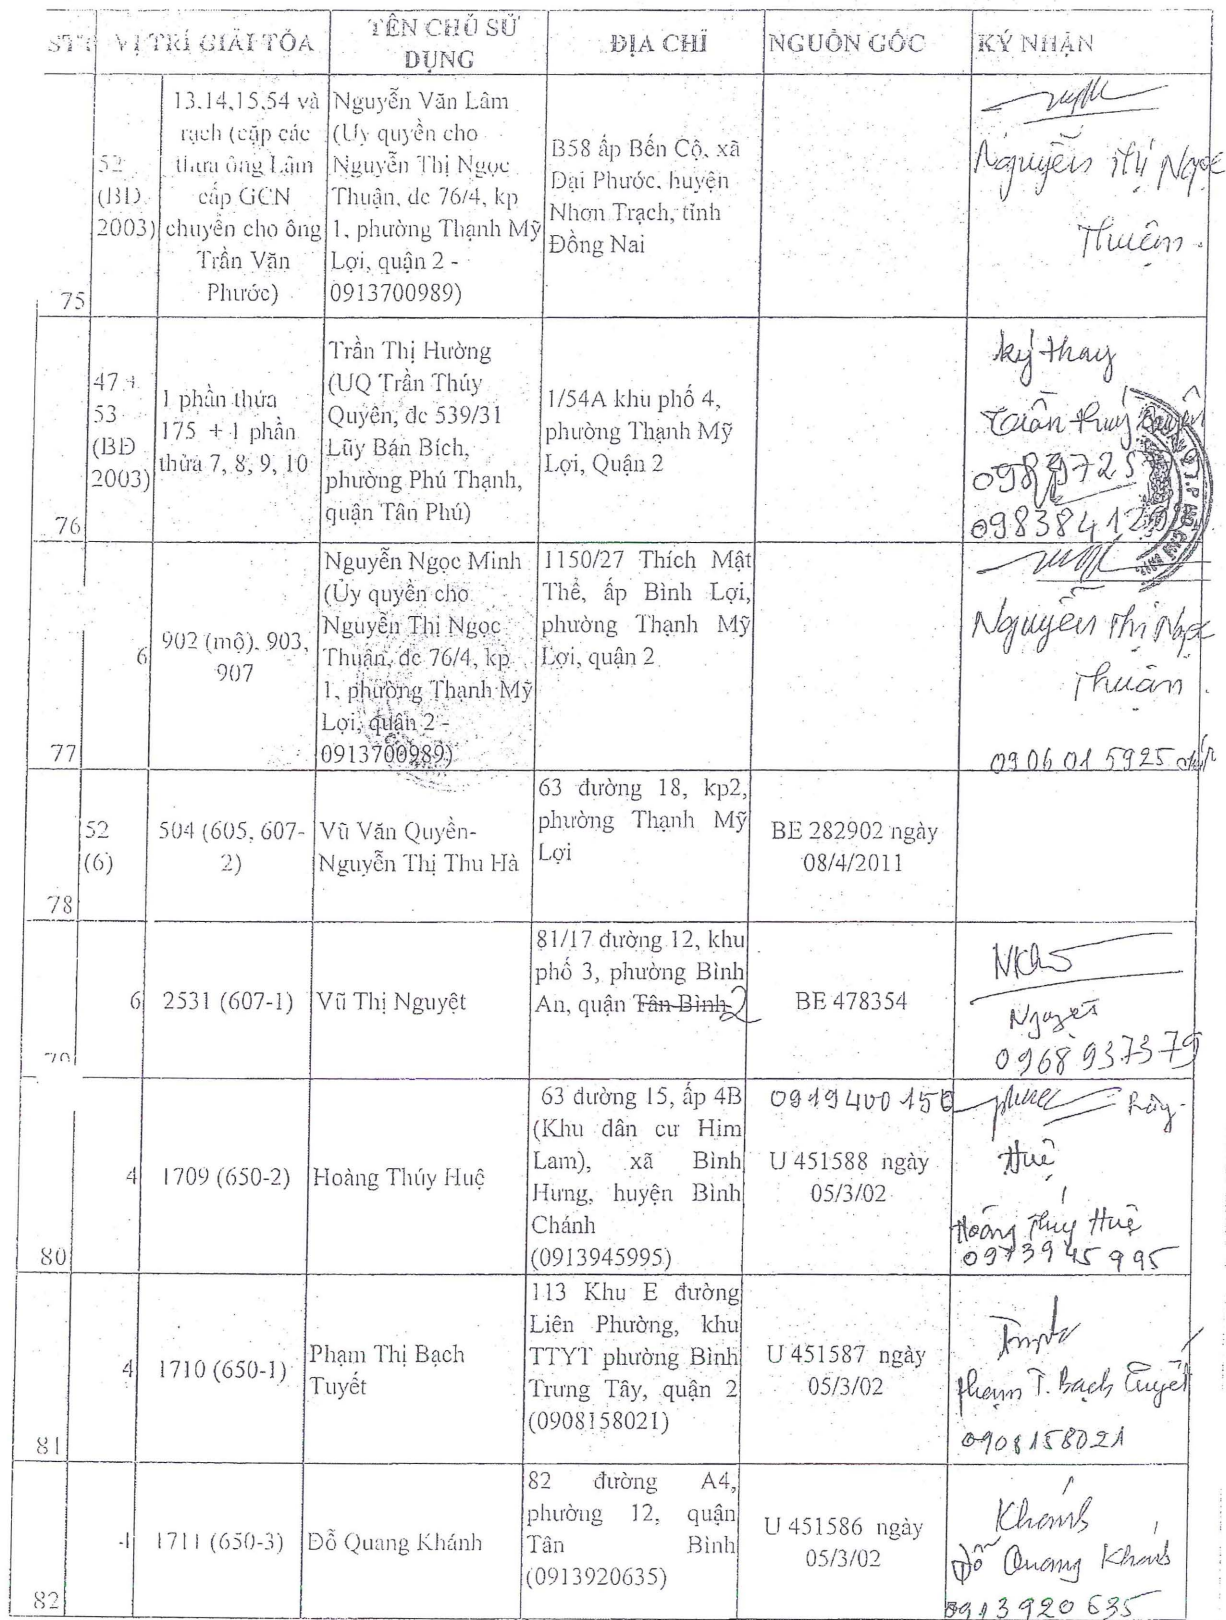 STT VỊ TRÍ GIẢI TỎA TÊN CHỦ SỬ DỤNG ĐỊA CHỈ NGUỒN GỐC KÝ NHẬN
75
52
(BĐ
2003)
13,14,15,54 và
rạch (cặp các
thửa ông Lâm
cấp GCN
chuyển cho ông
Trần Văn
Phước)
Nguyễn Văn Lâm
(Uỷ quyền cho
Nguyễn Thị Ngọc
Thuận, dc 76/4, kp
1, phường Thạnh Mỹ
Lợi, quận 2 -
0913700989)
B58 ấp Bến Cộ, xã
Đại Phước, huyện
Nhơn Trạch, tỉnh
Đồng Nai
Nguyễn Thị Ngọc
Thuận.
76
47 +
53
(BĐ
2003)
1 phần thửa
175 + 1 phần
thửa 7, 8, 9, 10
Trần Thị Hường
(UQ Trần Thúy
Quyên, đc 539/31
Lũy Bán Bích,
phường Phú Thạnh,
quận Tân Phú)
1/54A khu phố 4,
phường Thạnh Mỹ
Lợi, Quận 2
ký thay
Trần Thuý Quyên
77
6
902 (mộ), 903,
907
Nguyễn Ngọc Minh
(Ủy quyền cho
Nguyễn Thị Ngọc
Thuận, đc 76/4, kp
1, phường Thạnh Mỹ
Lợi, quận 2 -
0913700989)
1150/27 Thích Mật
Thể, ấp Bình Lợi,
phường Thạnh Mỹ
Lợi, quận 2
Nguyễn Thị Ngọc
Thuận.
0906015925
78
52
(6)
504 (605, 607-
2)
Vũ Văn Quyền-
Nguyễn Thị Thu Hà
63 đường 18, kp2,
phường Thạnh Mỹ
Lợi
BE 282902 ngày
08/4/2011
79
6
2531 (607-1)
Vũ Thị Nguyệt
81/17 đường 12, khu
phố 3, phường Bình
An, quận Tân Bình 2
BE 478354
Nguyệt
0968937379
80
4
1709 (650-2)
Hoàng Thúy Huệ
63 đường 15, ấp 4B
(Khu dân cư Him
Lam), xã Bình
Hưng, huyện Bình
Chánh
(0913945995)
0919400150
U 451588 ngày
05/3/02
Huệ
Hoàng Thúy Huệ
0973945995
81
4
1710 (650-1)
Phạm Thị Bạch
Tuyết
113 Khu E đường
Liên Phường, khu
TTYT phường Bình
Trưng Tây, quận 2
(0908158021)
U 451587 ngày
05/3/02
Phạm T. Bạch Tuyết
0908158021
82
4
1711 (650-3)
Đỗ Quang Khánh
82 đường A4,
phường 12, quận
Tân Bình
(0913920635)
U 451586 ngày
05/3/02
Khánh
Đỗ Quang Khánh
0913920635